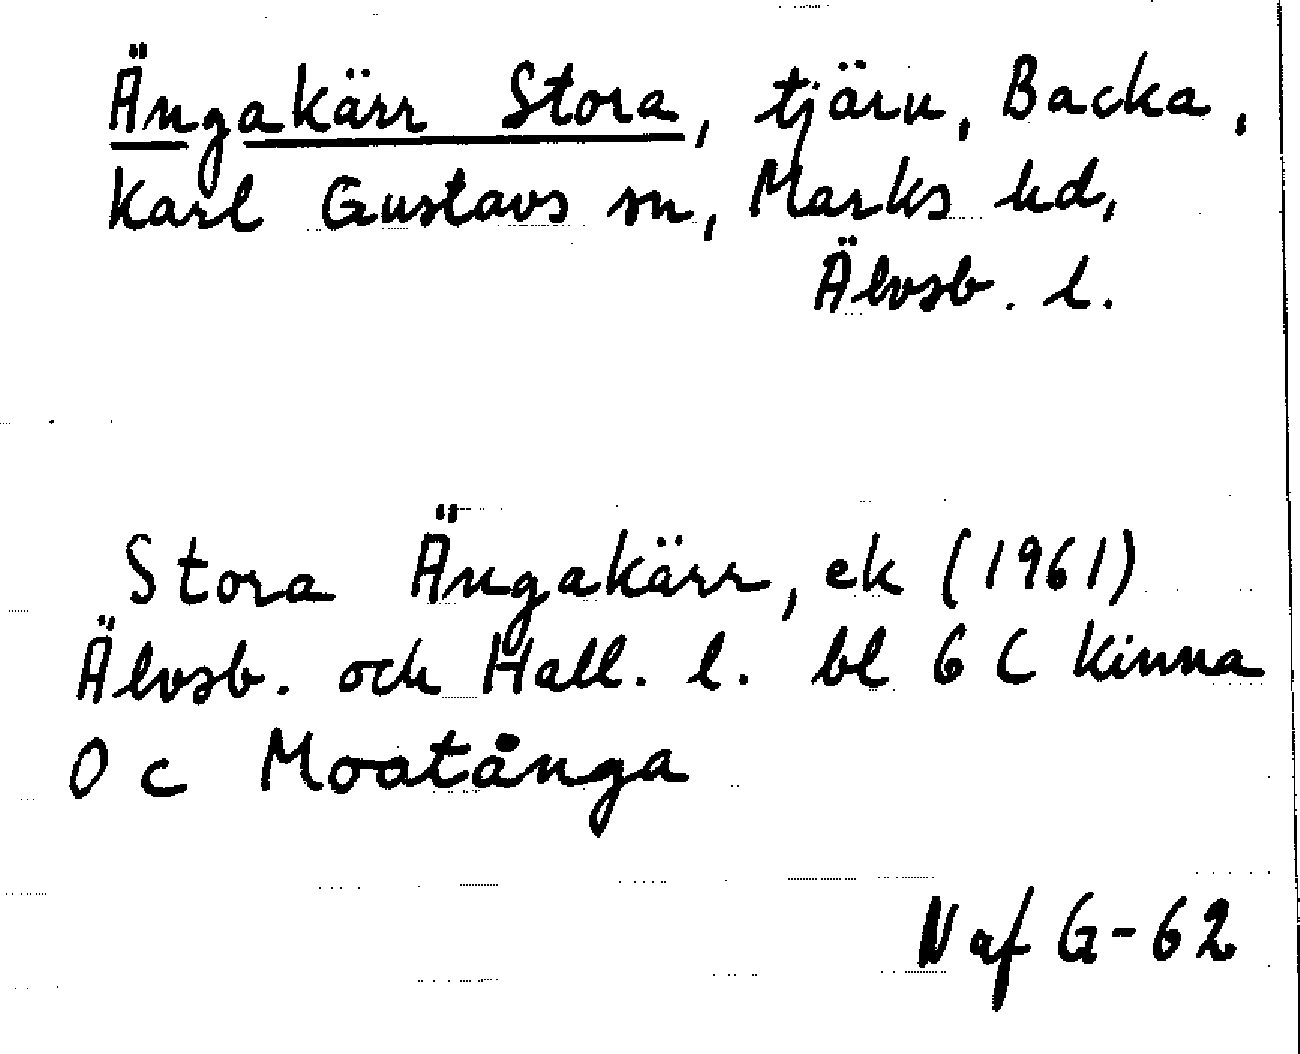 Ängakärr Stora, tjärn, Backa,
Karl Gustavs sn, Marks hd,
Älvsb. l.
Stora Ängakärr, ek (1961)
Älvsb. och Hall. l. bl 6 C Kinna
0 c Moatånga
N af G-62